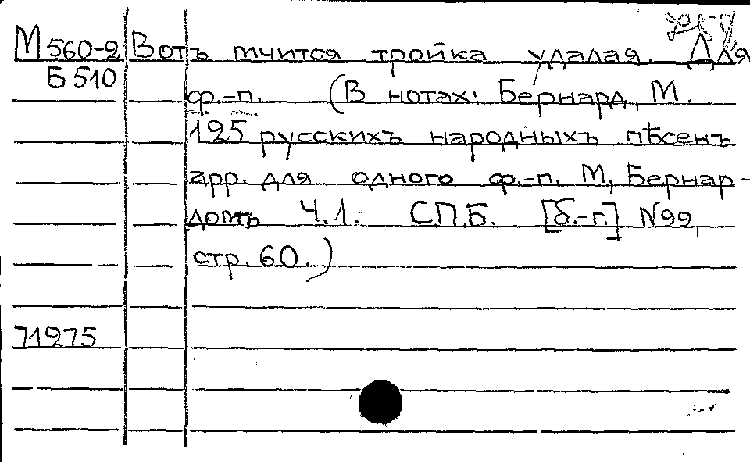 М 560-2 Вотъ мчится тройка удалая. Для
Б 510
ф.-п. (В нотах: Бернард, М.
125 русскихъ народныхъ пѣсенъ
арр. для одного ф.-п. М. Бернар-
домъ Ч.1. СПБ. [б.-г.] N99,
стр. 60.)
71975